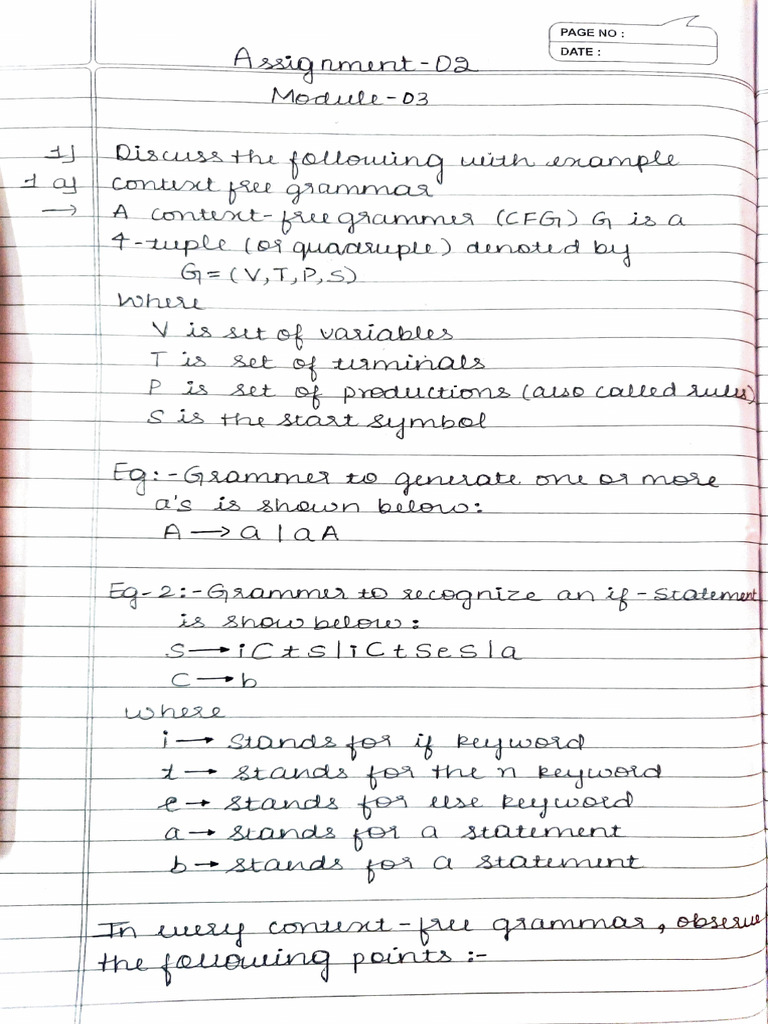 PAGE NO :
DATE :
Assignment-02
Module-03
1] Discuss the following with example
1 a] context free grammar
→ A context-free grammer (CFG) G is a
4-tuple (or quadruple) denoted by
G = (V, T, P, S)
Where
V is set of variables
T is set of terminals
P is set of productions (also called rules)
S is the start symbol
Eg:-Grammer to generate one or more
a's is shown below:
A → a | aA
Eg-2:-Grammer to recognize an if-statement
is show below:
S → iCtS | iCtSeS | a
C → b
where
i → stands for if keyword
t → stands for the n keyword
e → stands for else keyword
a → stands for a statement
b → stands for a statement
In every context-free grammar, observe
the following points :-